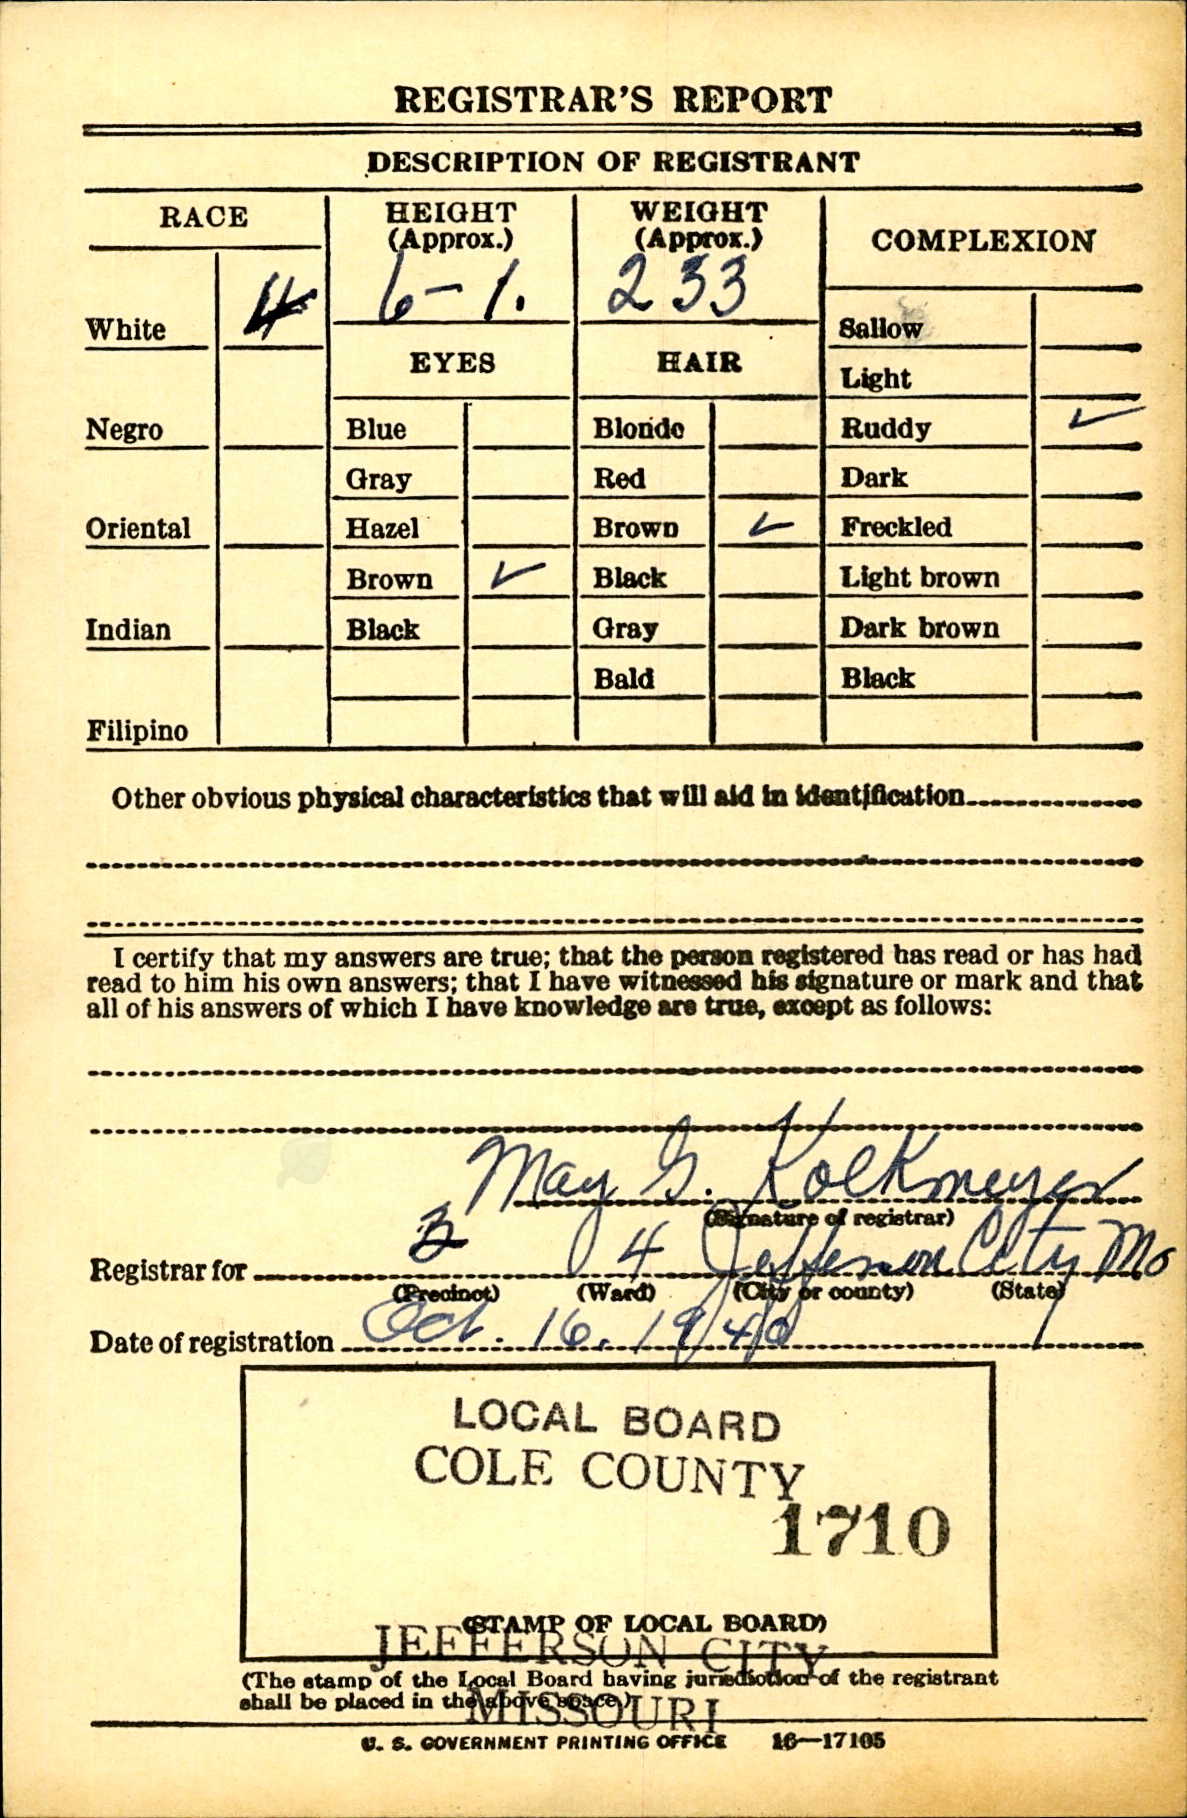 REGISTRAR'S REPORT
DESCRIPTION OF REGISTRANT
RACE
HEIGHT
(Approx.)
WEIGHT
(Approx.)
COMPLEXION
6-1.
233
White
Sallow
EYES
HAIR
Light
Negro
Blue
Blonde
Ruddy ✓
Gray
Red
Dark
Oriental
Hazel
Brown ✓
Freckled
Brown ✓
Black
Light brown
Indian
Black
Gray
Dark brown
Bald
Black
Filipino
Other obvious physical characteristics that will aid in identification
I certify that my answers are true; that the person registered has read or has had
read to him his own answers; that I have witnessed his signature or mark and that
all of his answers of which I have knowledge are true, except as follows:
May G. Kolkmeyer
(Signature of registrar)
Registrar for 4 Jefferson City Mo
(Precinct) (Ward) (City or county) (State)
Date of registration Oct. 16. 1940
LOCAL BOARD
COLE COUNTY
1710
(STAMP OF LOCAL BOARD)
JEFFERSON CITY
(The stamp of the Local Board having jurisdiction of the registrant
shall be placed in the above space.)
MISSOURI
U. S. GOVERNMENT PRINTING OFFICE 16—17105